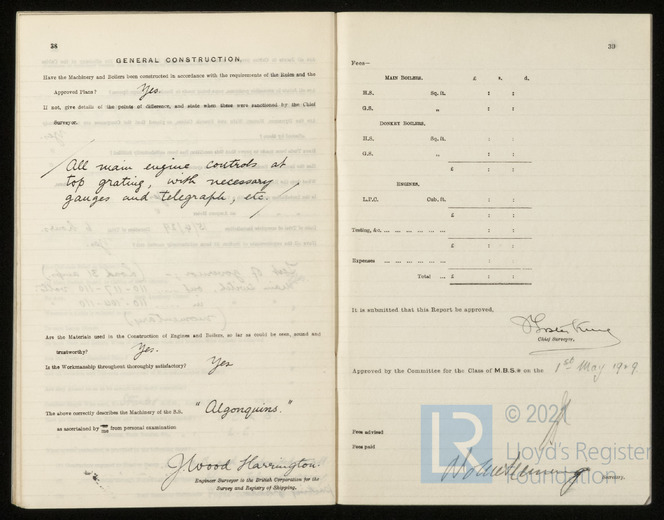 38
GENERAL CONSTRUCTION.
Have the Machinery and Boilers been constructed in accordance with the requirements of the Rules and the
Approved Plans? Yes.
If not, give details of the points of difference, and state when these were sanctioned by the Chief
Surveyor.
All main engine controls at
top grating, with necessary
gauges and telegraph, etc.
Are the Materials used in the Construction of Engines and Boilers, so far as could be seen, sound and
trustworthy? Yes.
Is the Workmanship throughout thoroughly satisfactory? Yes
The above correctly describes the Machinery of the S.S. "Algonquins."
as ascertained by from personal examination
J. Wood Harrington.
Engineer Surveyor to the British Corporation for the
Survey and Registry of Shipping.
39
Fees—
MAIN BOILERS. £ s. d.
H.S. Sq. ft. : :
G.S. „ : :
DONKEY BOILERS.
H.S. Sq. ft. : :
G.S. „ : :
£ : :
ENGINES.
L.P.C. Cub. ft. : :
£ : :
Testing, &c. ... : :
£ : :
Expenses ... : :
Total ... £ : :
It is submitted that this Report be approved,
Chief Surveyor.
Approved by the Committee for the Class of M.B.S.* on the 1st May 1929.
Fees advised
Fees paid
Secretary.
LR
© 2021
Lloyd's Register
Foundation